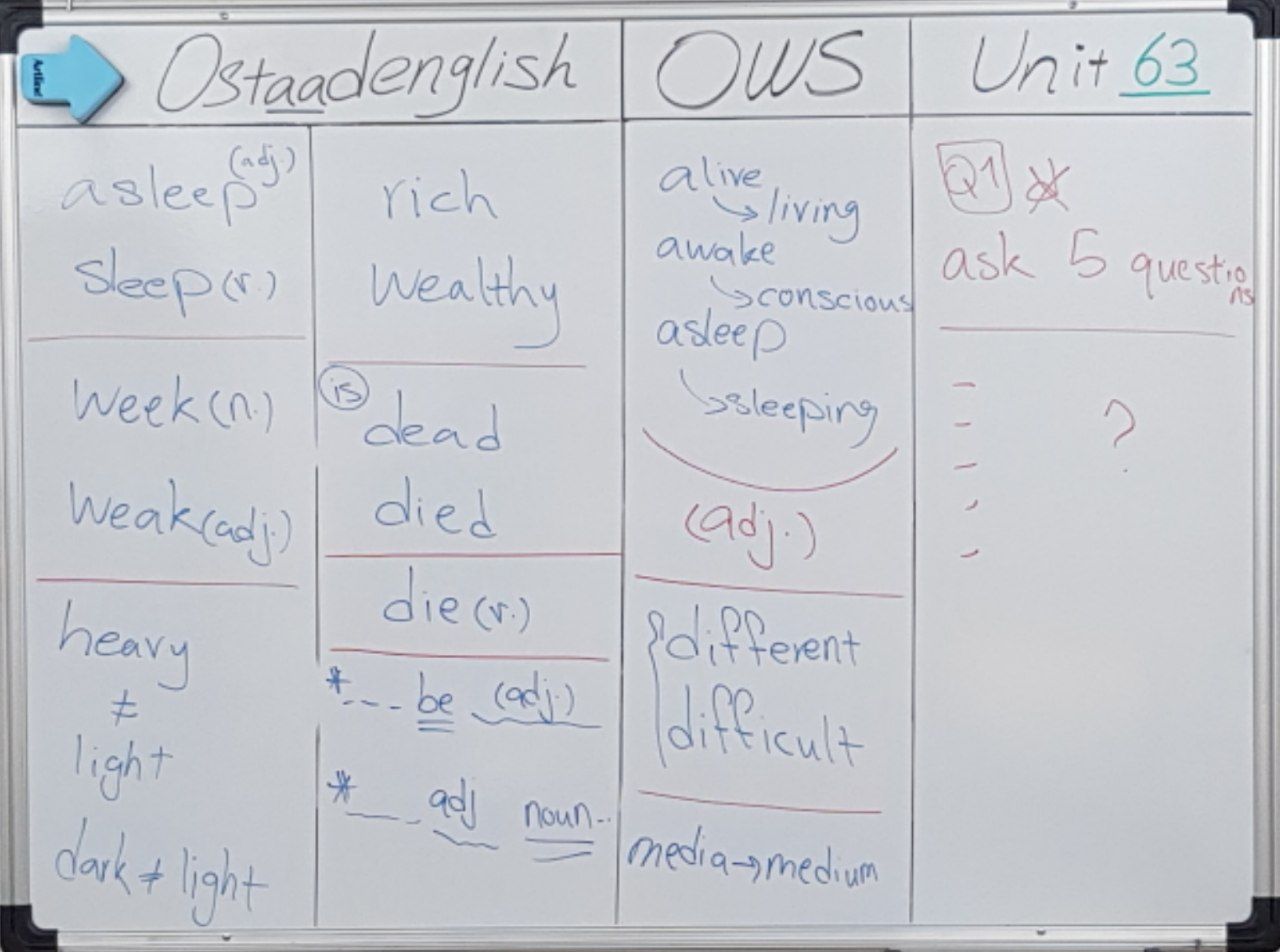 Artline
Ostaadenglish
OWS
Unit 63
asleep (adj.)
sleep (v.)
week (n.)
weak (adj.)
heavy
≠
light
dark ≠ light
rich
wealthy
is
dead
died
die (v.)
*--- be (adj.)
* adj noun..
alive
↘ living
awake
↘ conscious
asleep
↘ sleeping
(adj.)
different
difficult
media → medium
Q1
ask 5 questions
?